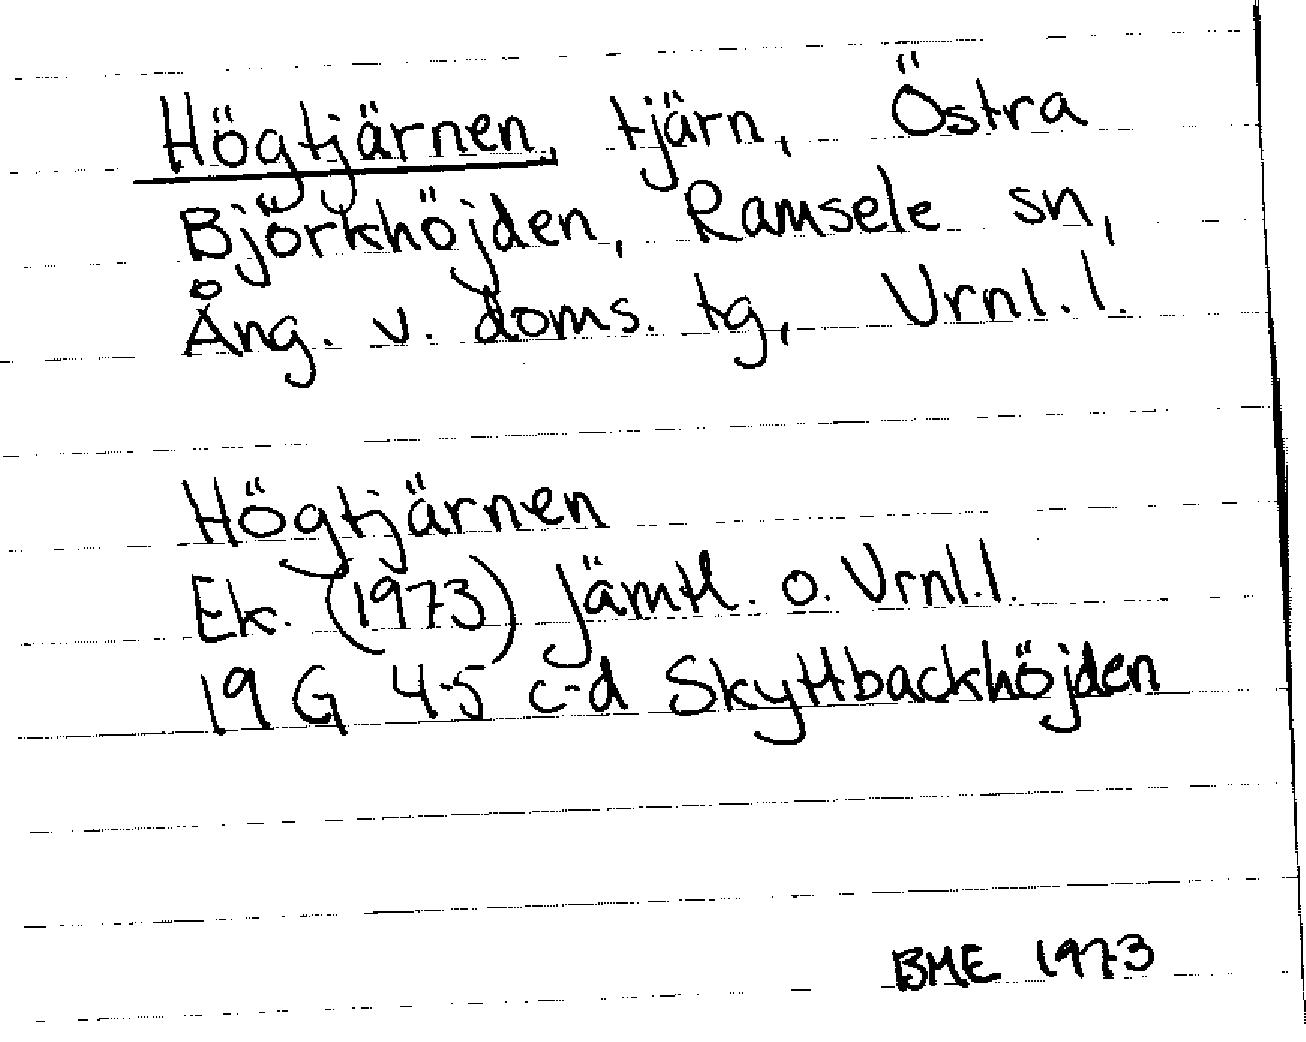 Högtjärnen, tjärn, Östra
Björkhöjden, Ramsele sn,
Ång. v. doms. tg, Vrnl. l.
Högtjärnen
Ek. (1973) Jämtl. o. Vrnl. l.
19 G 4-5 c-d Skyttbackhöjden
BME 1973